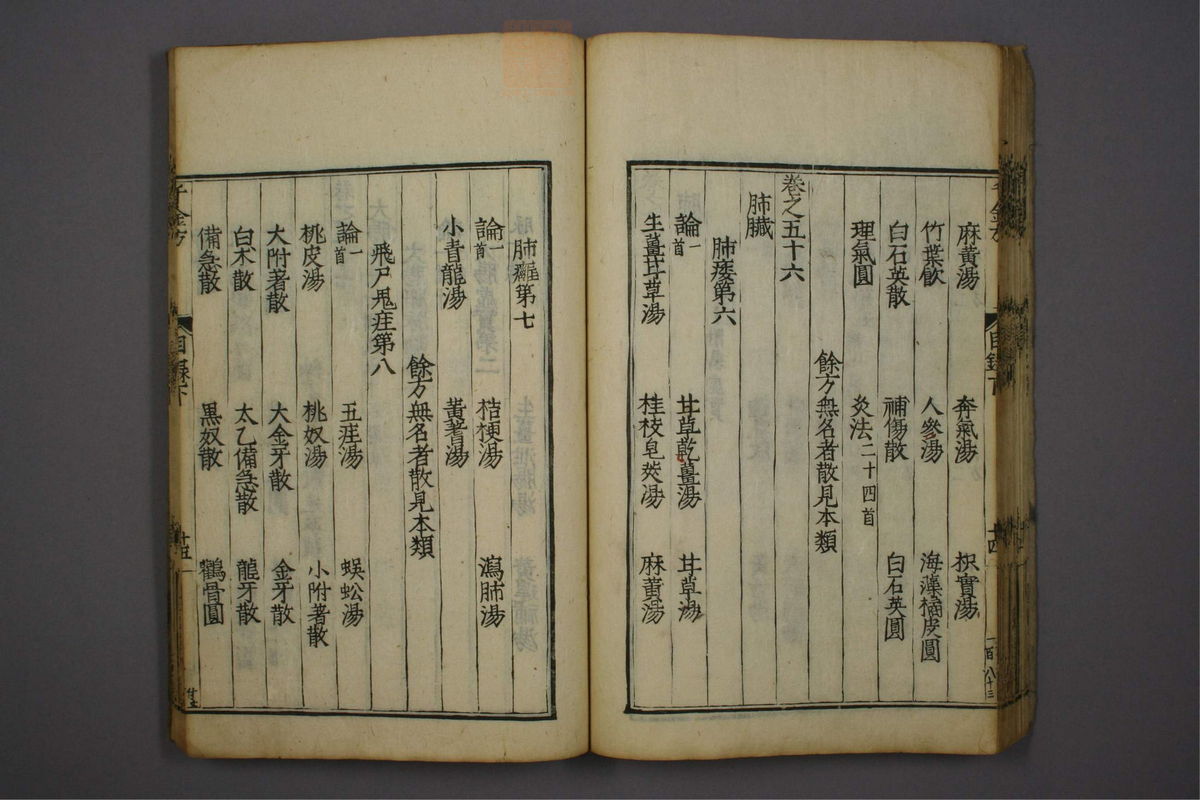 麻黄湯　奔氣湯　枳實湯
竹葉飲　人參湯　海藻橘皮圓
白石英散　補傷散　白石英圓
理氣圓　灸法二十四首
餘方無名者散見本類
卷之五十六
肺臟
肺痿第六
論一首　甘草乾薑湯　甘草湯
生薑甘草湯　桂枝皂莢湯　麻黄湯
肺癰第七
論一首　桔梗湯　瀉肺湯
小青龍湯　黄耆湯
餘方無名者散見本類
飛尸鬼疰第八
論一首　五疰湯　蜈蚣湯
桃皮湯　桃奴湯　小附著散
大附著散　大金牙散　金牙散
白朮散　太乙備急散　龍牙散
備急散　黒奴散　鸛骨圓
千金方　目錄下